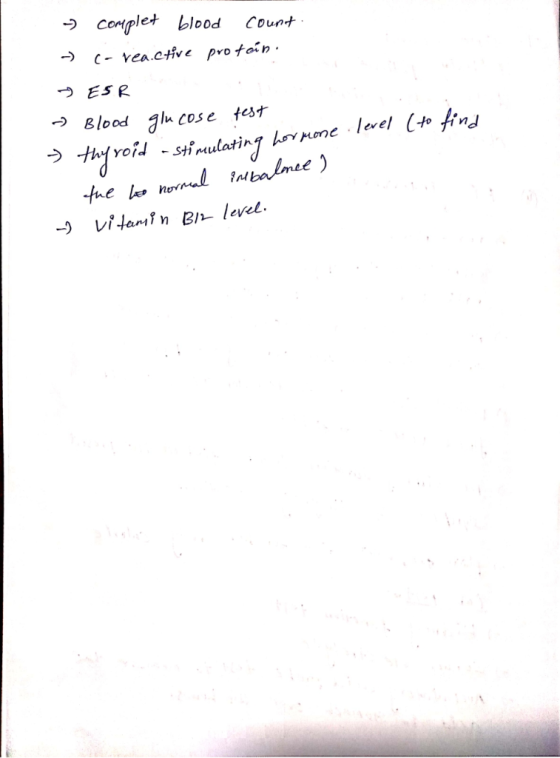 → complet blood count.
→ c- reactive protein.
→ ESR
→ Blood glucose test
→ thyroid - stimulating hormone level (to find
the normal imbalnce)
→ Vitamin B12 level.